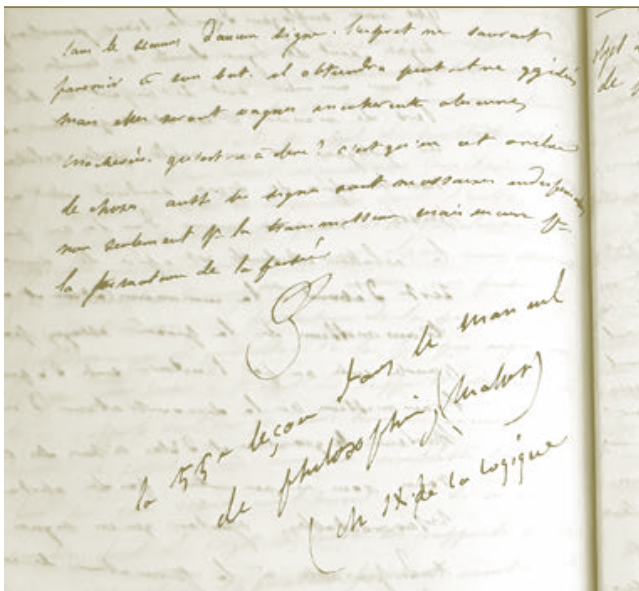 sans le secours d'aucun signe. l'esprit ne saurait
parvenir à son but. il obtiendra peut être qq idées
mais elles seront vagues incohérentes obscures
inachevées. qu'est-ce à dire? c'est qu'en cet
de choses aussi les signes sont nécessaires indispensables
non seulement pr la transmission mais encore pr
la formation de la pensée
la 55e leçon dans le manuel
de philosophie
(ch IX de la logique
de